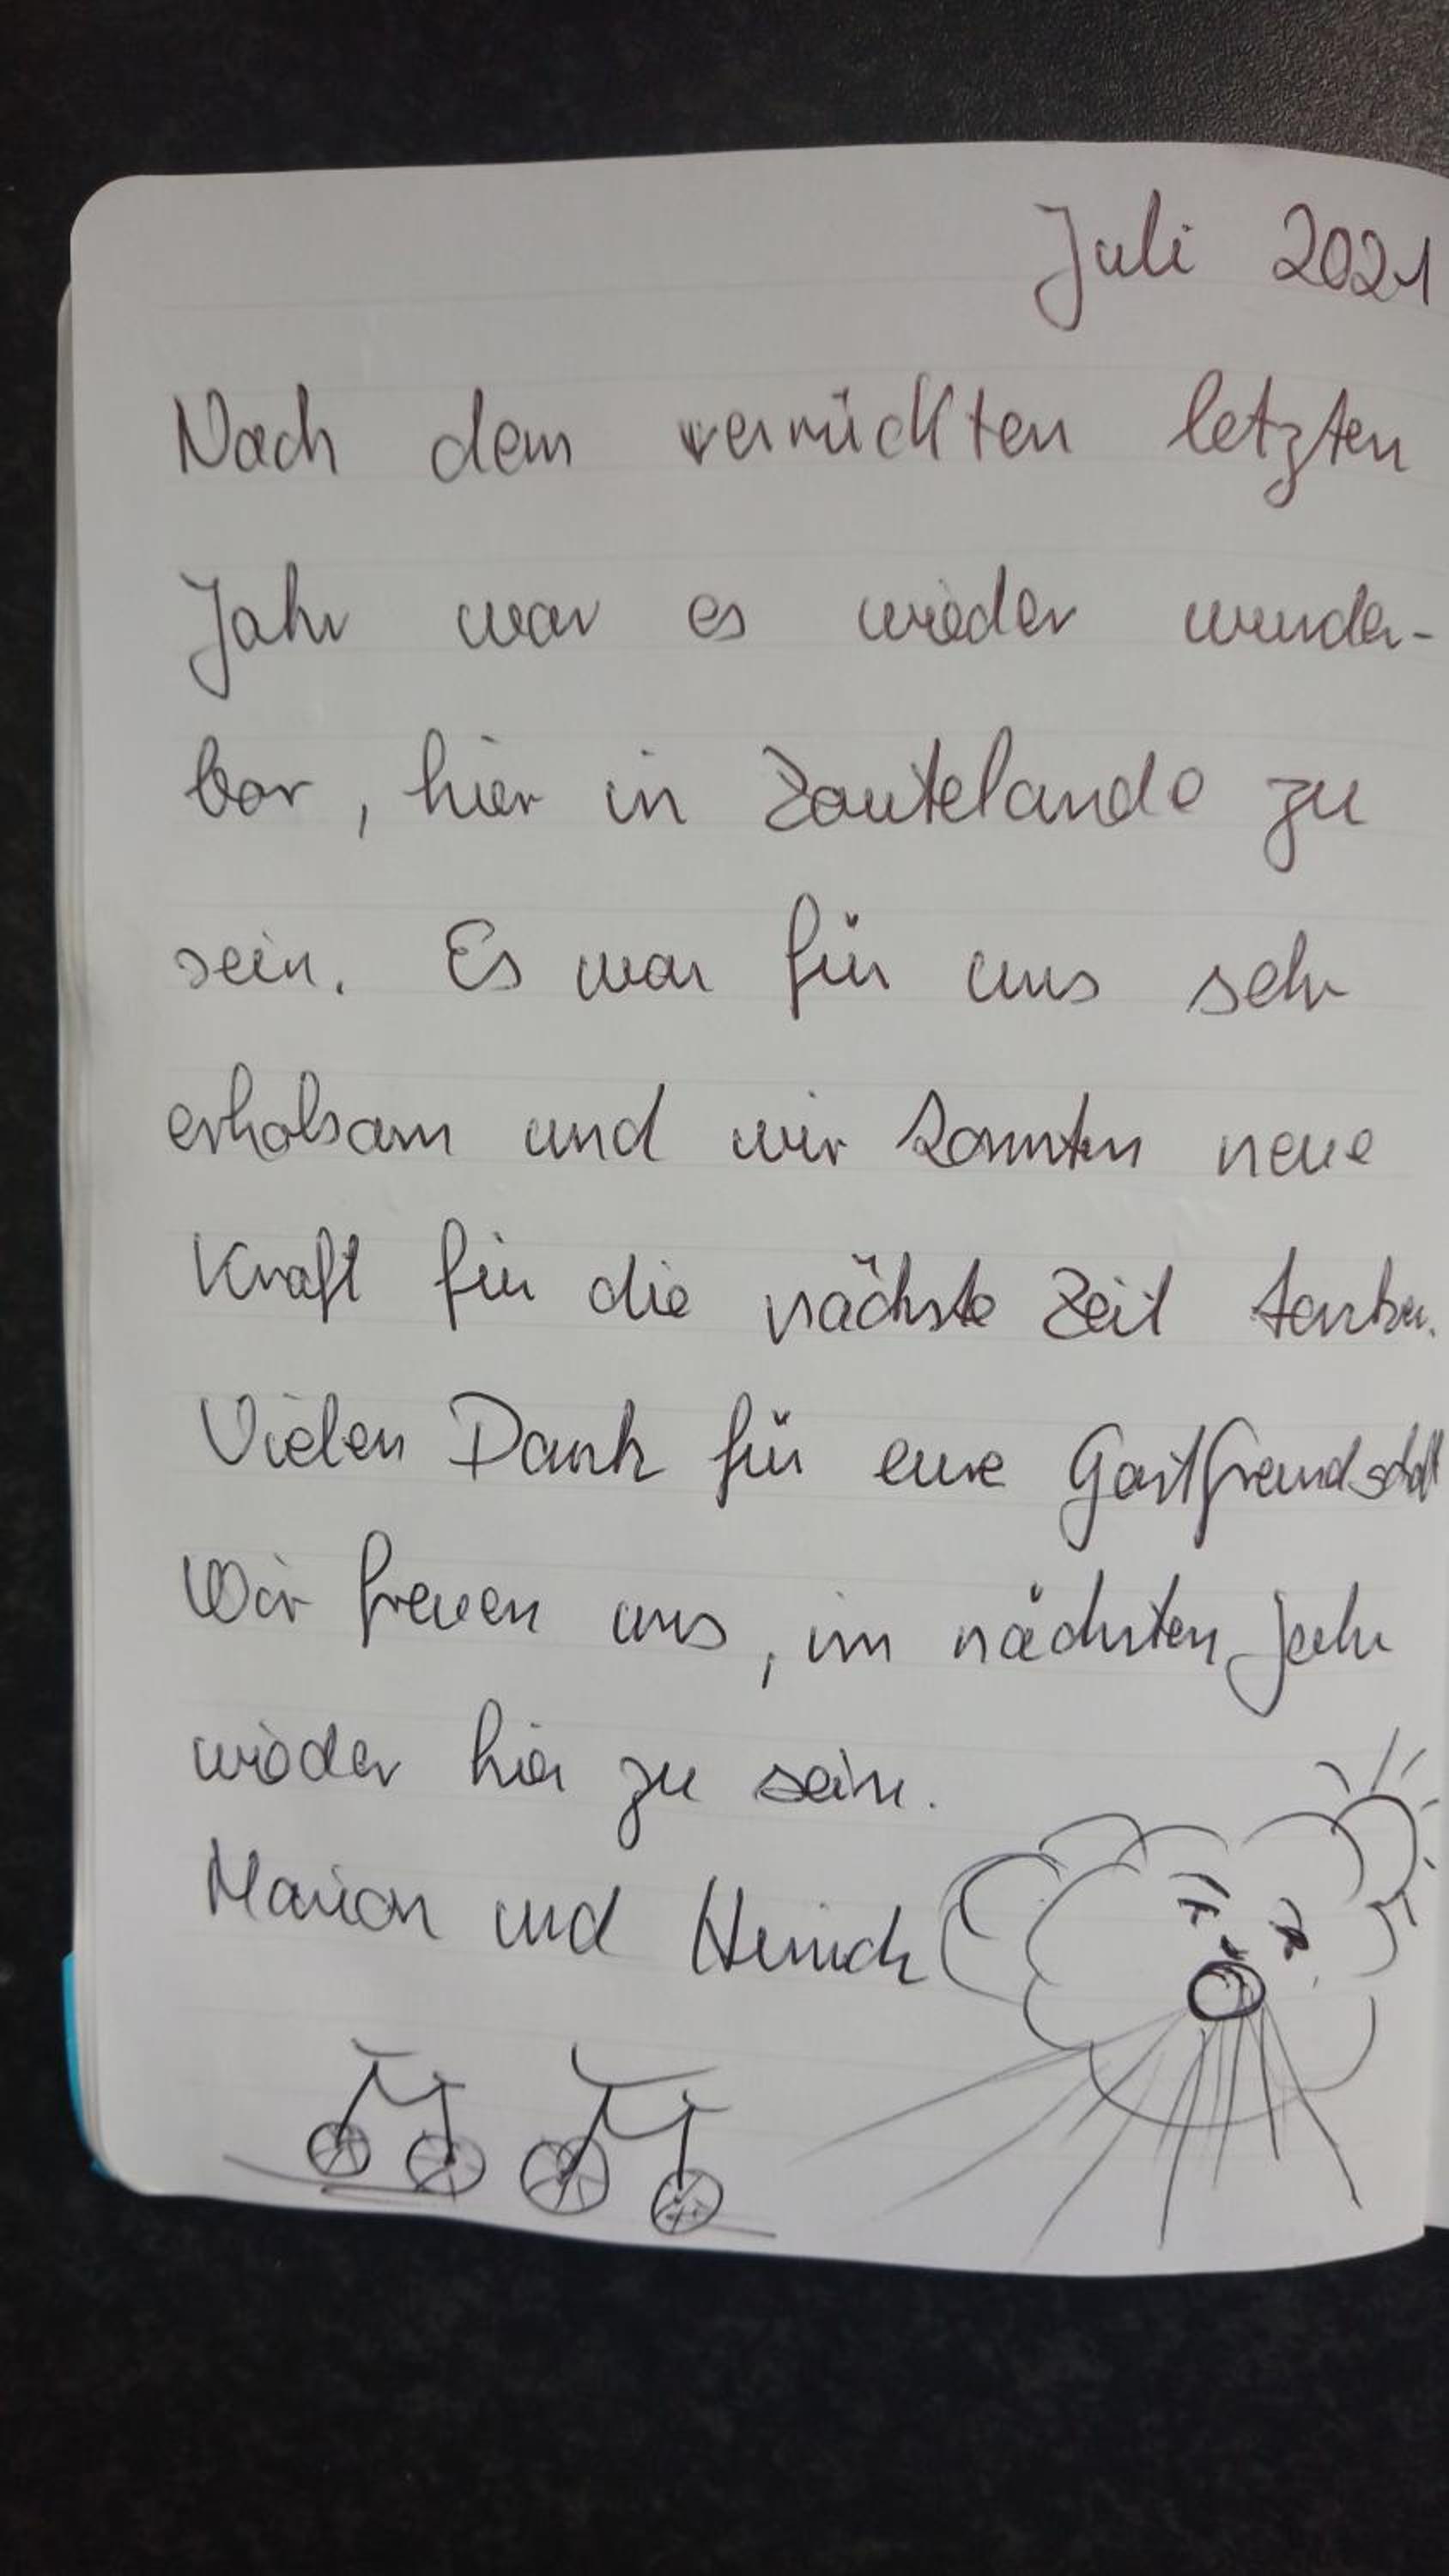 Juli 2021
Nach dem verrückten letzten
Jahr war es wieder wunder-
bar, hier in Zoutelande zu
sein. Es war für uns sehr
erholsam und wir konnten neue
Kraft für die nächste Zeit tanken.
Vielen Dank für eure Gastfreundschaft
Wir freuen uns, im nächsten Jahr
wieder hier zu sein.
Marion und Heinrich